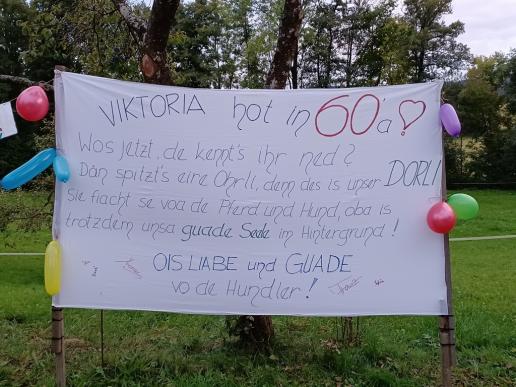 VIKTORIA hot in 60'a ♡
Wos jetzt, de kennt's ihr ned?
Dån spitzt's eire Ohrli, denn des is unser DORLI
Sie fiacht se voa de Pferd und Hund, oba is
trotzdem unsa guade Seele im Hintergrund!
OIS LIABE und GUADE
vo de Hundler!